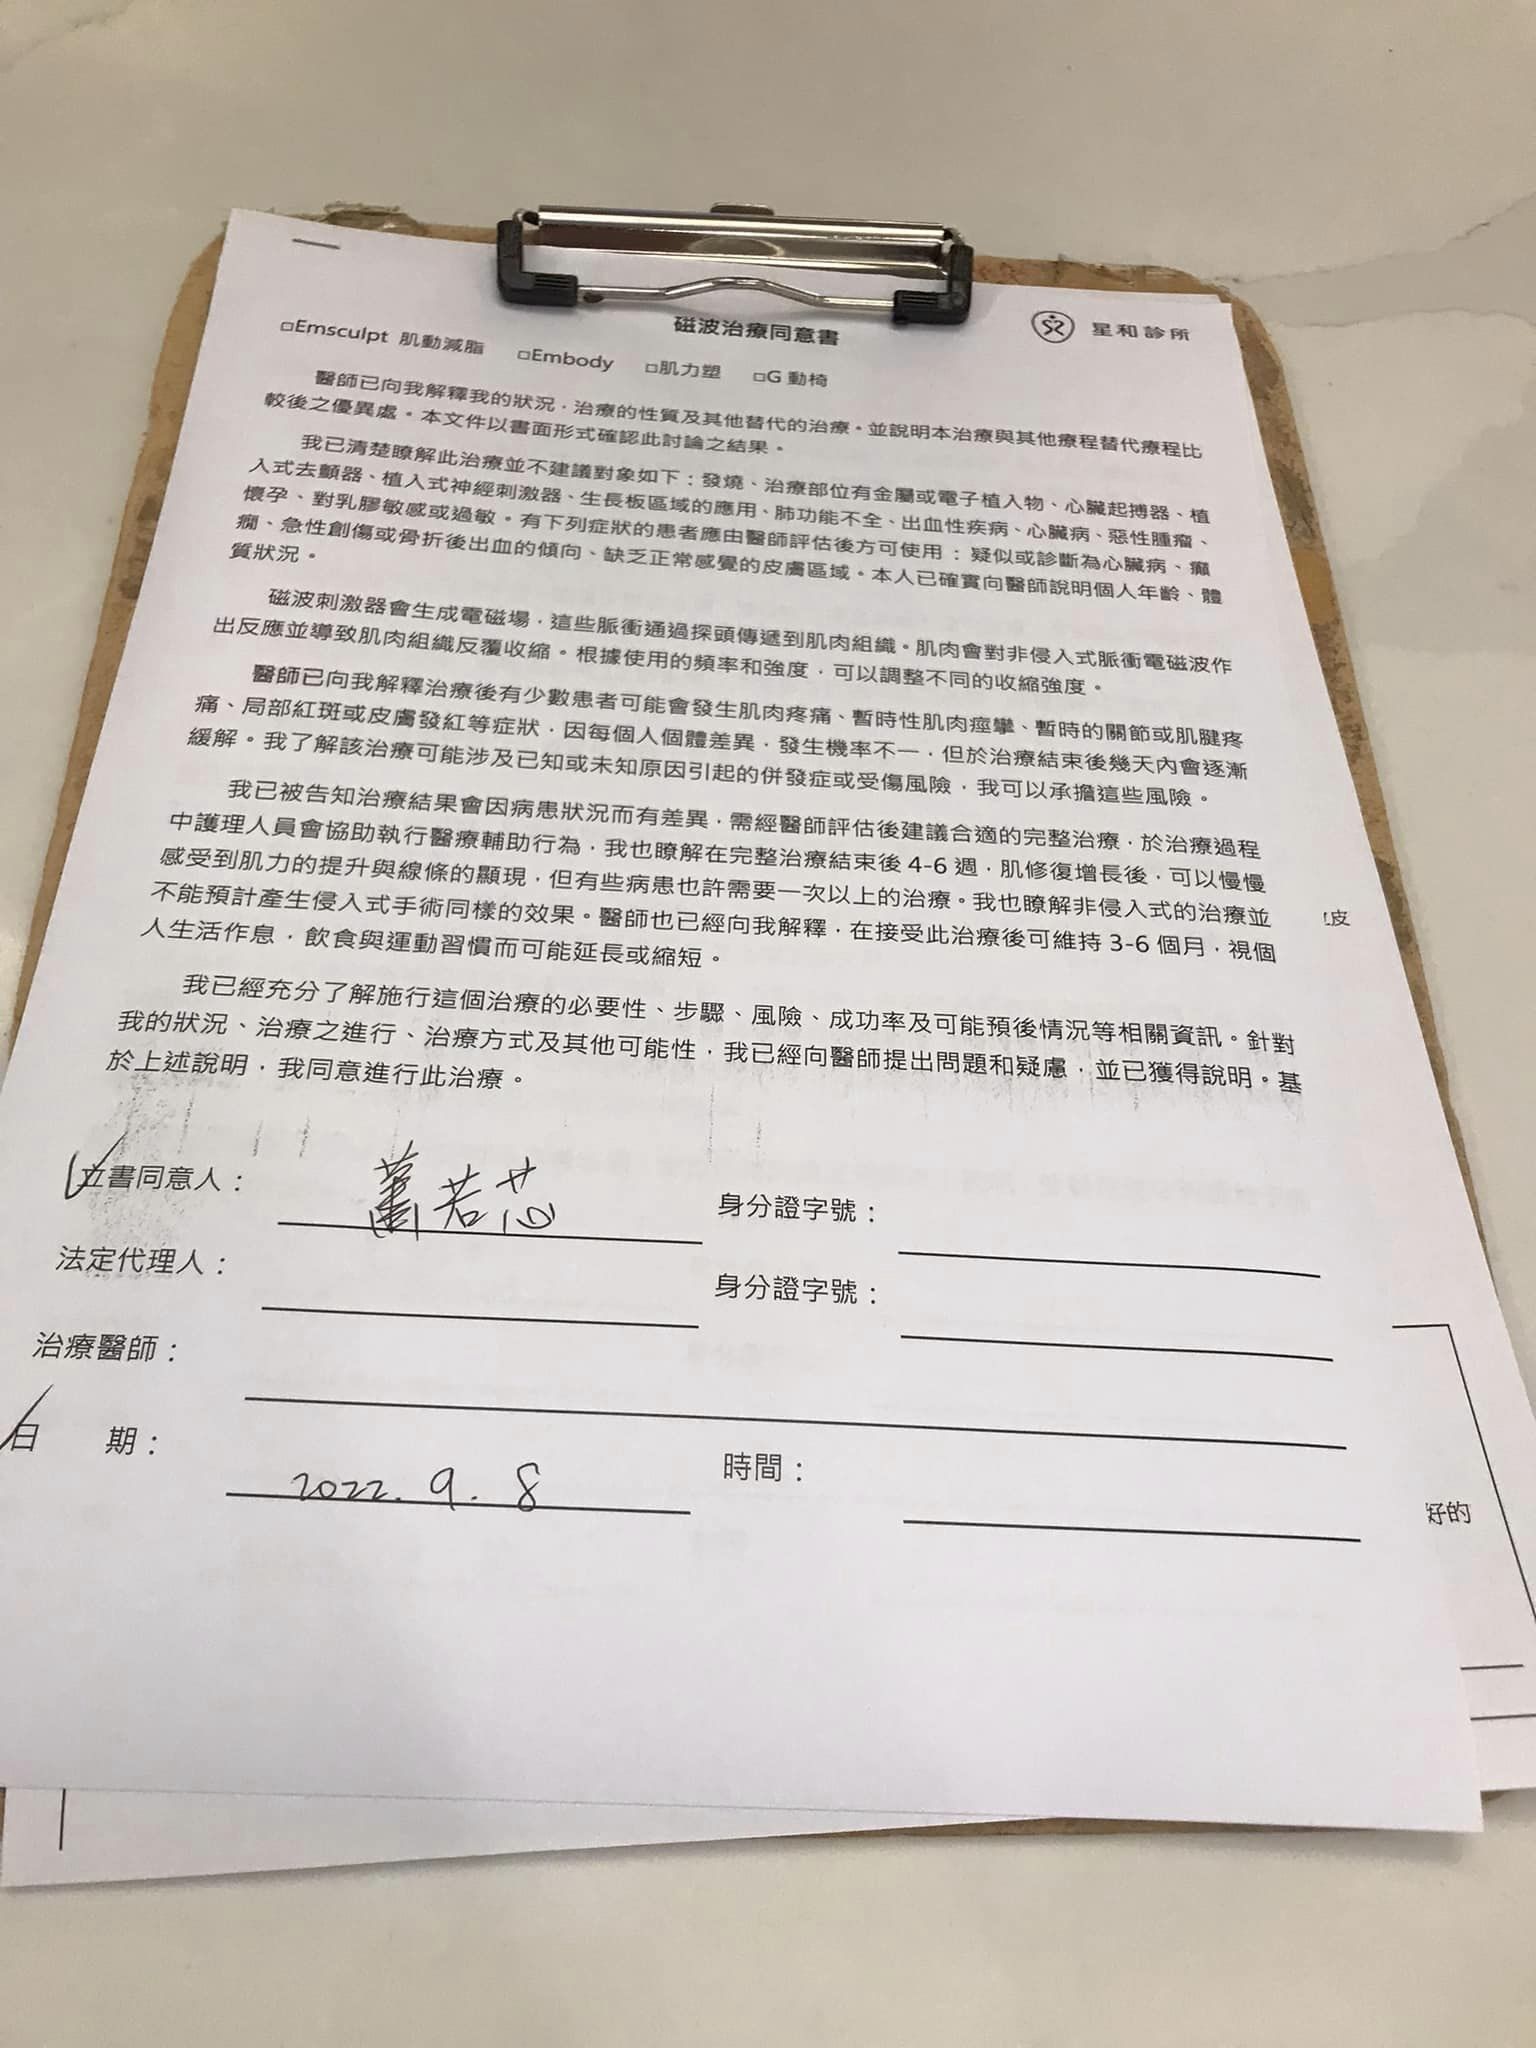 磁波治療同意書
星和診所
□Emsculpt 肌動減脂 □Embody □肌力塑 □G 動椅
醫師已向我解釋我的狀況，治療的性質及其他替代的治療。並說明本治療與其他療程替代療程比
較後之優異處。本文件以書面形式確認此討論之結果。
我已清楚瞭解此治療並不建議對象如下：發燒、治療部位有金屬或電子植入物、心臟起搏器、植
入式去顫器、植入式神經刺激器、生長板區域的應用、肺功能不全、出血性疾病、心臟病、惡性腫瘤、
懷孕、對乳膠敏感或過敏。有下列症狀的患者應由醫師評估後方可使用：疑似或診斷為心臟病、癲
癇、急性創傷或骨折後出血的傾向、缺乏正常感覺的皮膚區域。本人已確實向醫師說明個人年齡、體
質狀況。
磁波刺激器會生成電磁場，這些脈衝通過探頭傳遞到肌肉組織。肌肉會對非侵入式脈衝電磁波作
出反應並導致肌肉組織反覆收縮。根據使用的頻率和強度，可以調整不同的收縮強度。
醫師已向我解釋治療後有少數患者可能會發生肌肉疼痛、暫時性肌肉痙攣、暫時的關節或肌腱疼
痛、局部紅斑或皮膚發紅等症狀，因每個人個體差異，發生機率不一，但於治療結束後幾天內會逐漸
緩解。我了解該治療可能涉及已知或未知原因引起的併發症或受傷風險，我可以承擔這些風險。
我已被告知治療結果會因病患狀況而有差異，需經醫師評估後建議合適的完整治療，於治療過程
中護理人員會協助執行醫療輔助行為，我也瞭解在完整治療結束後 4-6 週，肌修復增長後，可以慢慢
感受到肌力的提升與線條的顯現，但有些病患也許需要一次以上的治療。我也瞭解非侵入式的治療並
不能預計產生侵入式手術同樣的效果。醫師也已經向我解釋，在接受此治療後可維持 3-6 個月，視個
人生活作息，飲食與運動習慣而可能延長或縮短。
我已經充分了解施行這個治療的必要性、步驟、風險、成功率及可能預後情況等相關資訊。針對
我的狀況、治療之進行、治療方式及其他可能性，我已經向醫師提出問題和疑慮，並已獲得說明。基
於上述說明，我同意進行此治療。
立書同意人： 蕭若芯 身分證字號：
法定代理人： 身分證字號：
治療醫師：
日 期： 2022. 9. 8 時間：
皮
好的